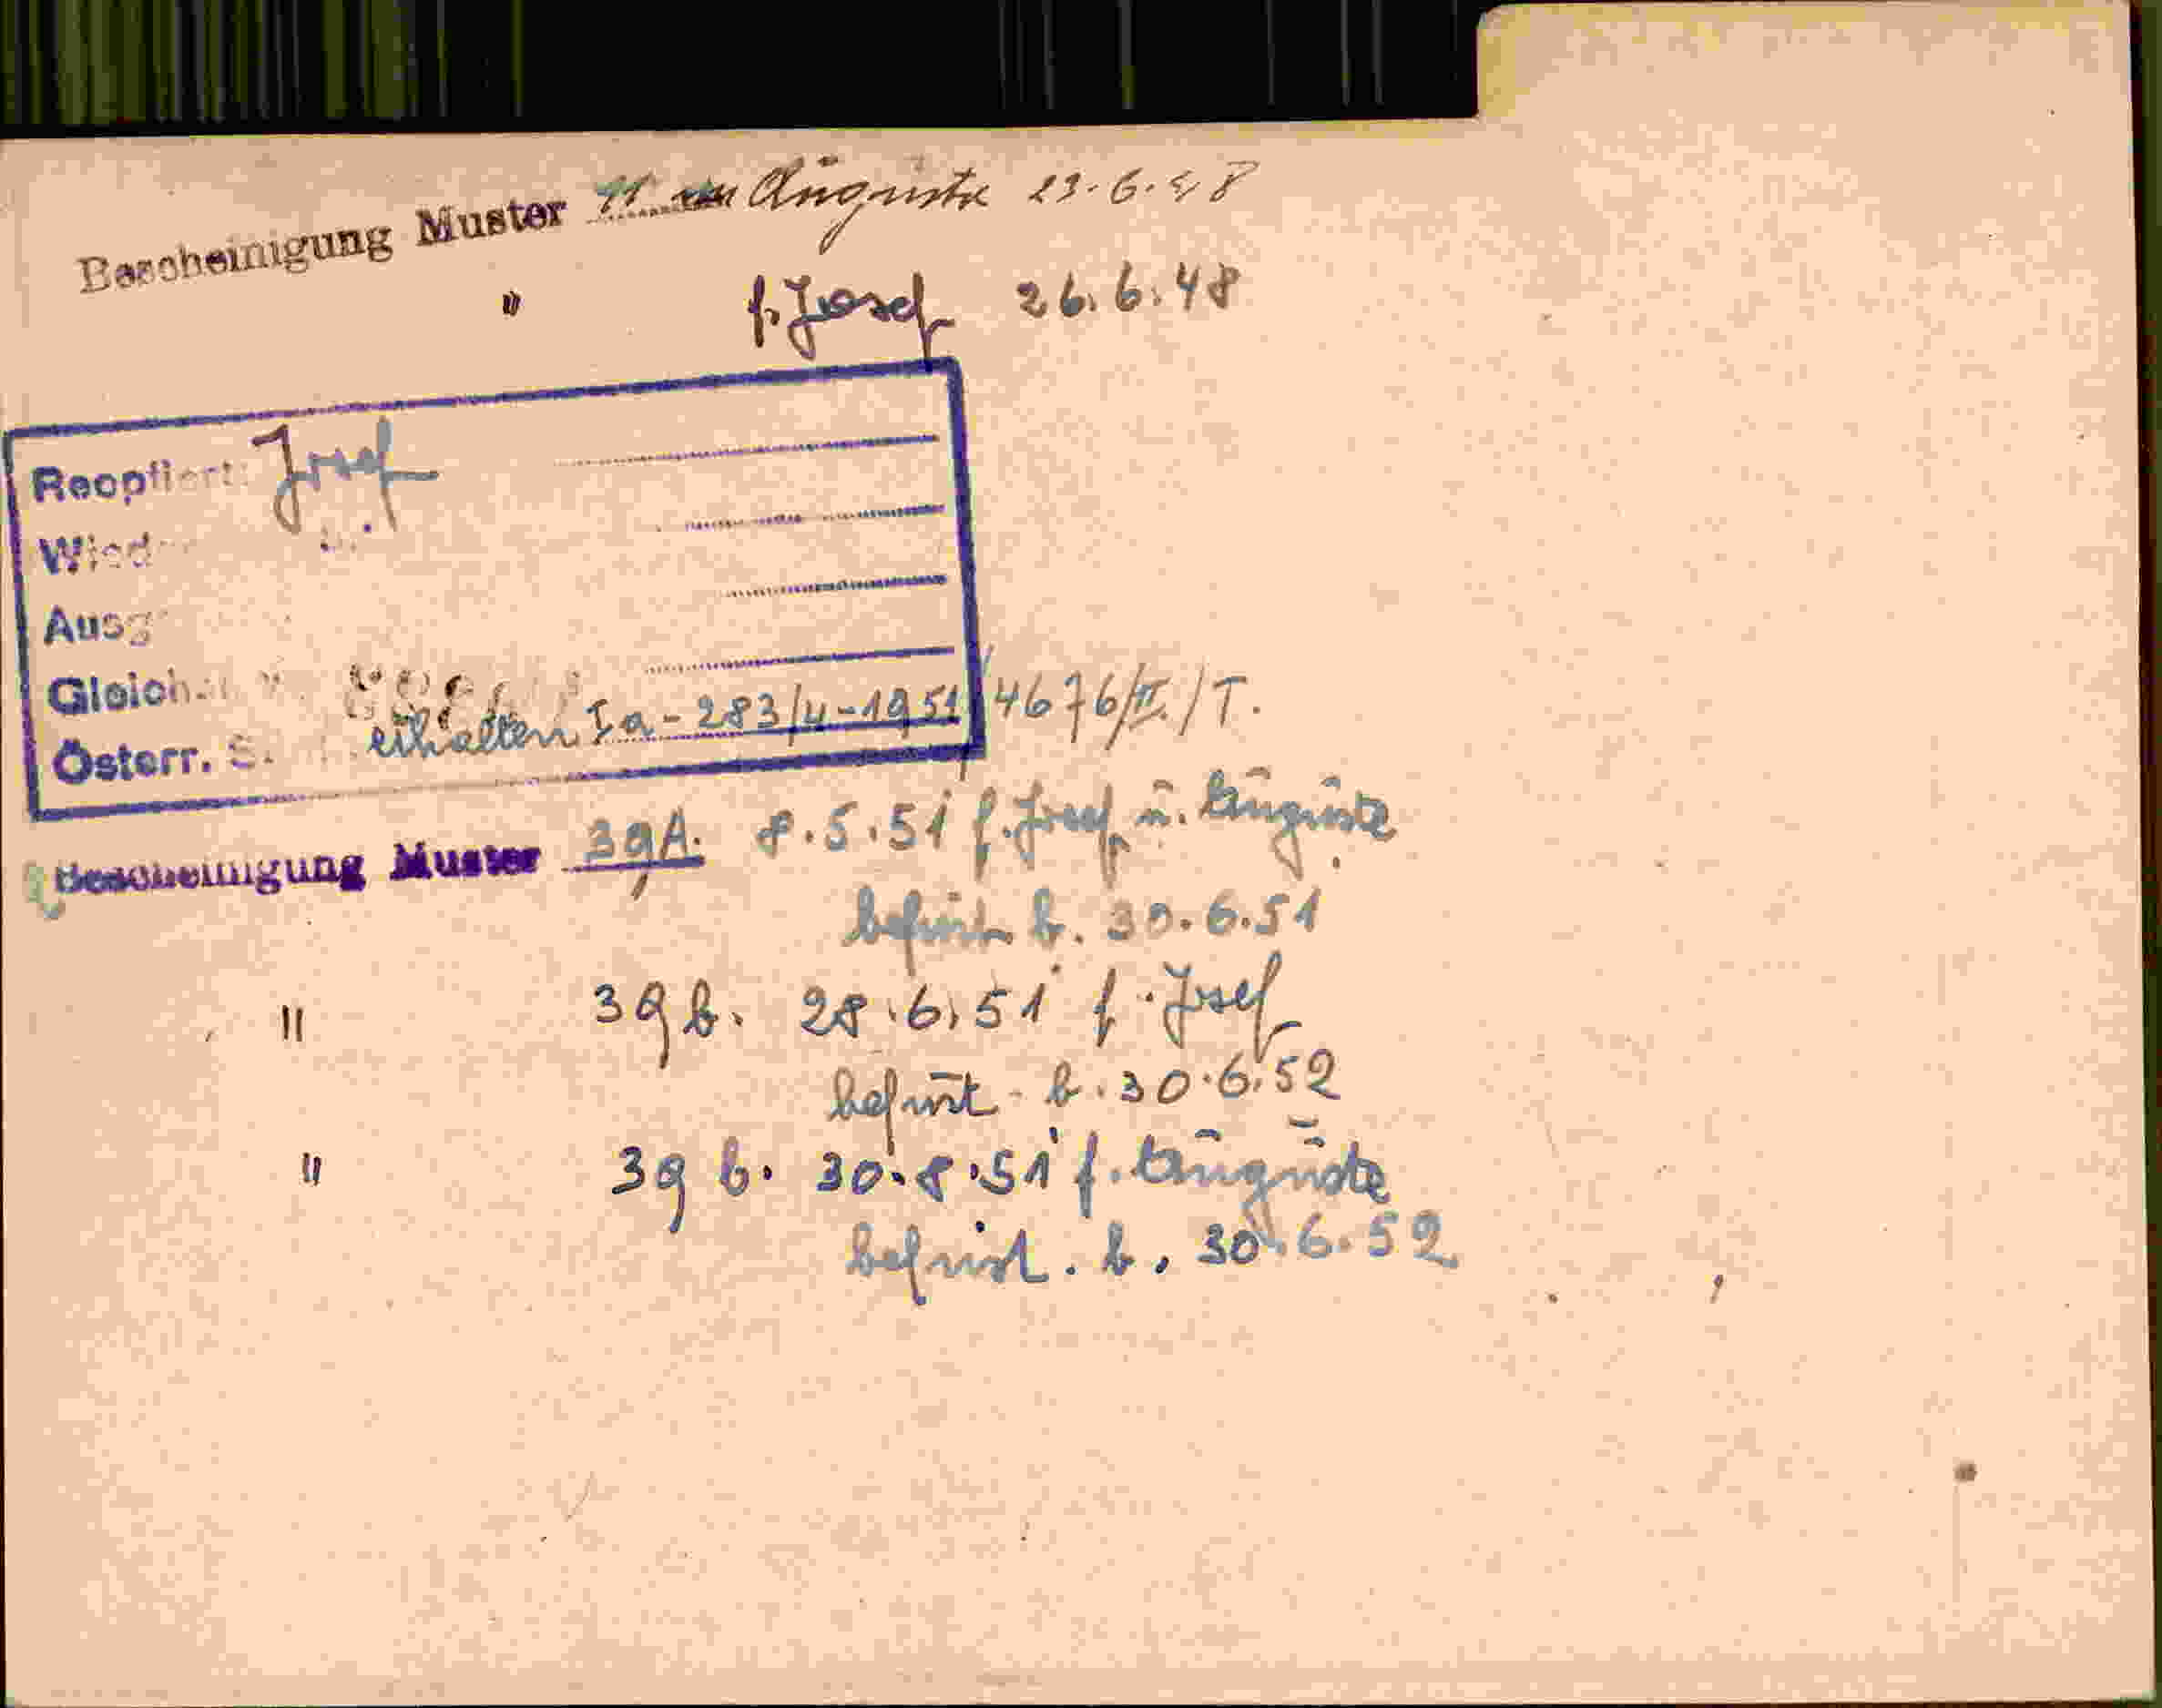 Bescheinigung Muster 11 Auguste 23.6.48
" f. Josef 26.6.48
Reoptiert: Josef
Wied
Ausg
Gleich
Österr. S. erhalten Ia-283/4-1951/4676/II./T.
Bescheinigung Muster 39A. 8.5.51 f. Josef u. Auguste
befrist b. 30.6.51
" 39 b. 28.6.51 f. Josef
befrist. b. 30.6.52
" 39 b. 30.8.51 f. Auguste
befrist. b. 30.6.52